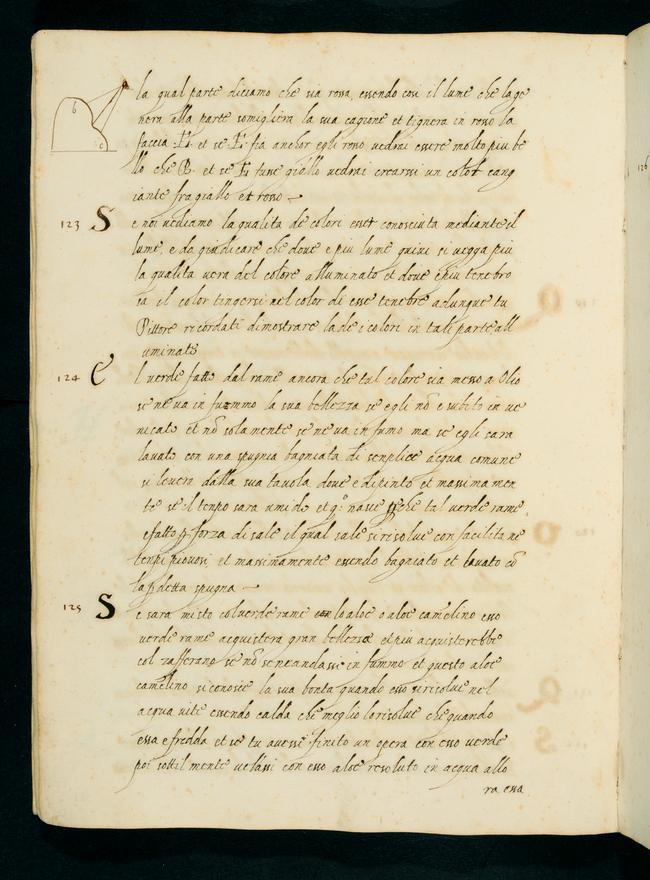 la qual parte diciamo che sia rossa, essendo così il lume che lage
nera alla parte somigliera la sua cagione et tignera in rosso la
faccia E. et se E. fia anchor egli rosso vedrai essere molto piu be
llo che B. et se E fusse giallo vedrai crearsi un color cang
iante fra giallo et rosso
123 Se noi vediamo la qualita de colori esser conosciuta mediante il
lume, e da giudicare che dove e piu lume quivi si vegga piu
la qualita vera del colore alluminato et dove e piu tenebro
sa il color tingersi nel color di esse tenebre adunque tu
Pittore ricordati di mostrare la de i colori in tali parte all
uminate
124 El verde fatto dal rame ancora che tal colore sia messo a Olio
se ne va in fummo la sua bellezza se egli nō e subito in ve
nicato et nō solamente se ne va in fumo ma se egli sara
lavato con una spugnia bagniata di senplice acqua comune
si levera dalla sua tavola dove e dipinto et massimamen
te se il tenpo sara umido et q.° nasce che tal verde rame
e fatto p forza di sale il qual sale si risolve con facilita ne
tenpi piovosi et massimamente essendo bagniato et lavato cō
la pdetta spugna
125 Se sara misto col verde rame lo aloe o aloe camelino esso
verde rame acquistera gran bellezza et piu acquisterebbe
col zafferano se nō se ne andassi in fummo et questo aloe
camelino si conosce la sua bonta quando esso si risolve nel
acqua vite essendo calda che meglio lo risolve che quando
essa e fredda et se tu avessi finito un opera con esso verde
poi sottilmente velassi con esso aloe resoluto in acqua allo
ra essa
b
c
126